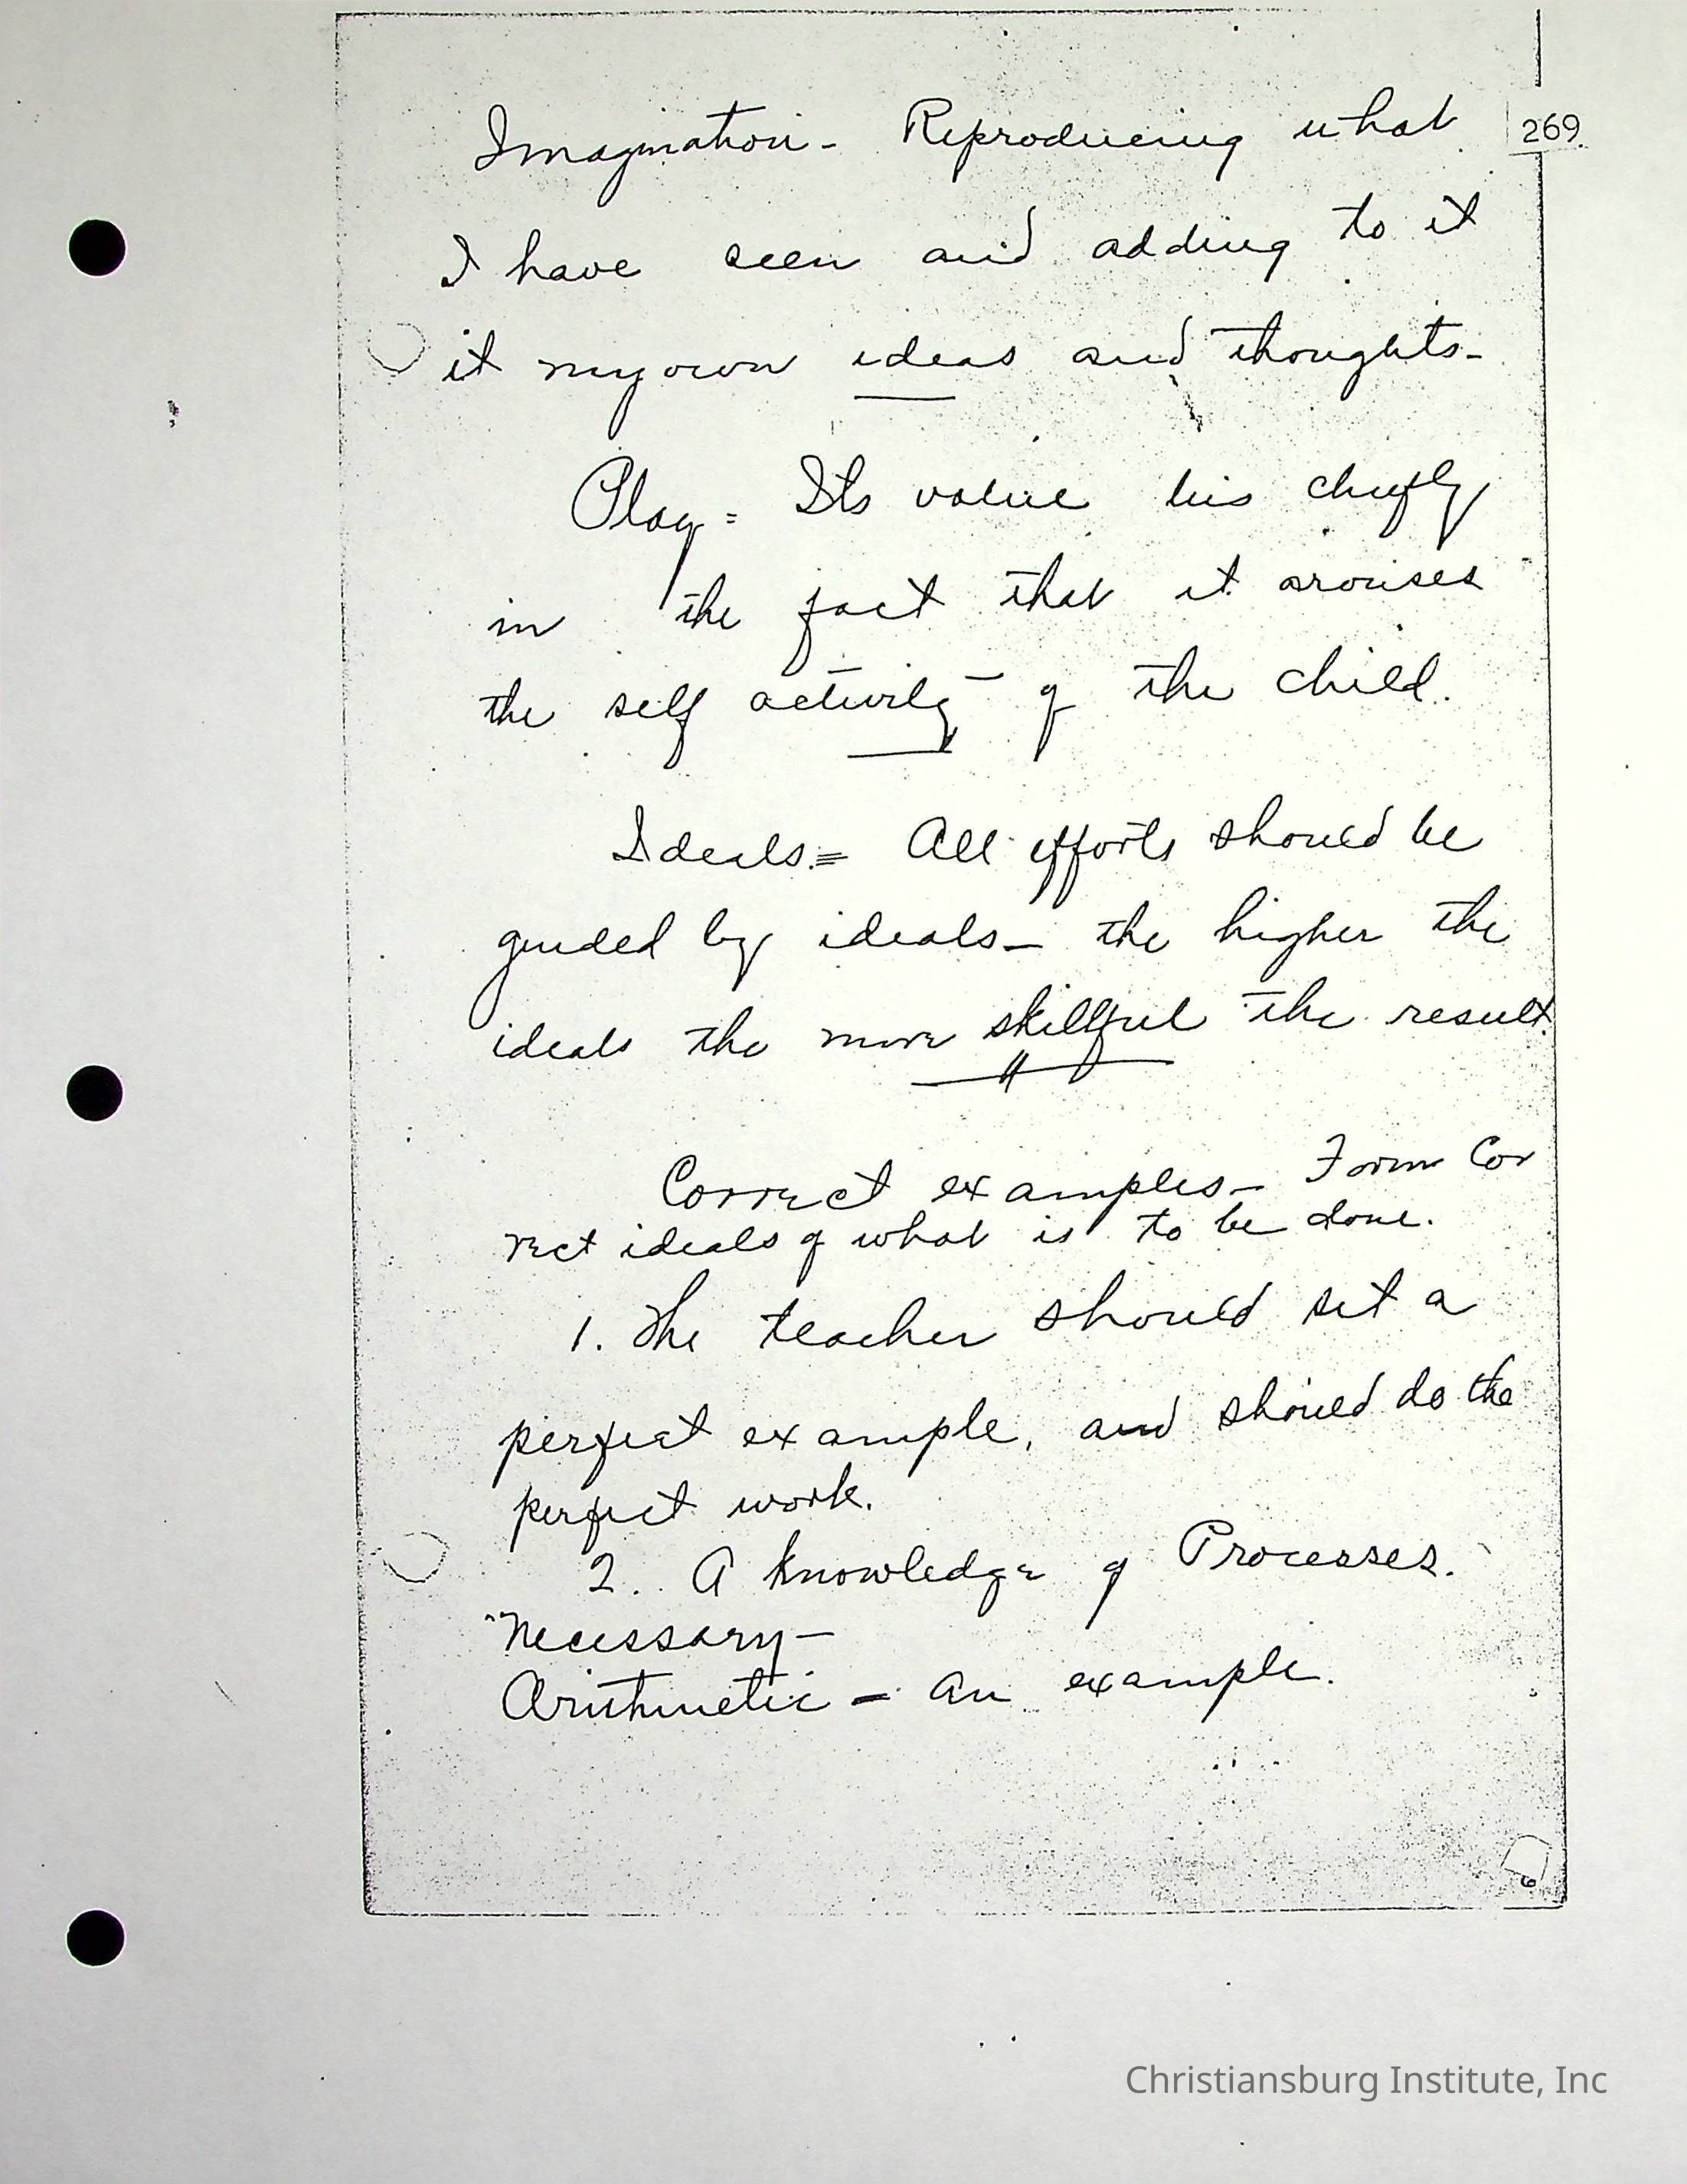 Imagination - Reproducing what
269.
I have seen and adding to it
it my own ideas and thoughts -
Play = Its value lies chiefly
in the fact that it arouses
the self activity of the child.
Ideals. = All efforts should be
guided by ideals - the higher the
ideals the more skillful the result.
Correct examples - Form Cor
rect ideals of what is to be done.
1. The teacher should set a
perfect example, and should do the
perfect work.
2. A knowledge of Processes.
Necessary -
Arithmetic - an example.
Christiansburg Institute, Inc